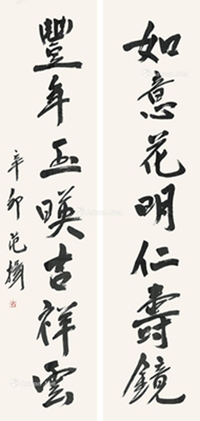 如意花明仁壽鏡
豐年玉暎吉祥雲
辛卯范攝